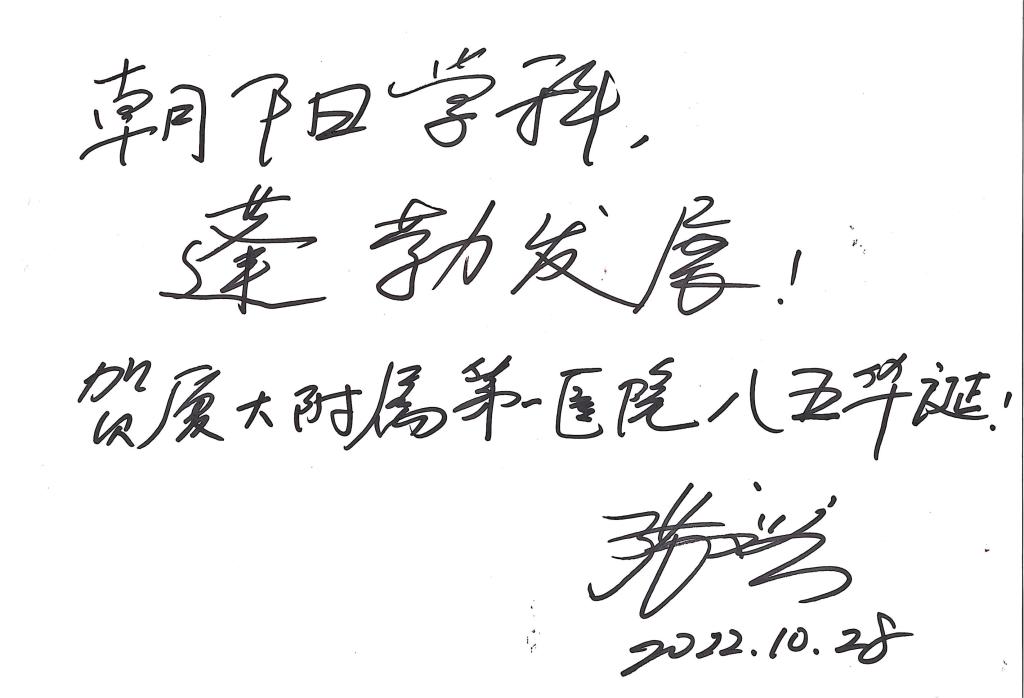 朝阳学科,
蓬勃发展!
贺厦大附属第一医院八五华诞!
2022.10.28